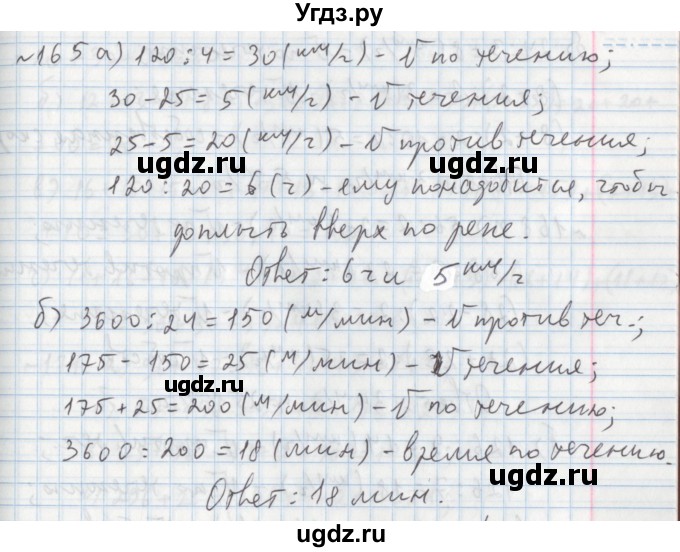 Угдз.ру
№165 а) 120:4=30(км/г) - V по течению;
30-25=5(км/г) - V течения;
25-5=20(км/г) - V против течения;
ugdz.ru ugdz.ru
120:20=6(г) - ему понадобится, чтобы
доплыть вверх по реке.
Ответ: 6 ч и 5 км/г
б) 3600:24=150(м/мин) - V против теч.;
ugdz.ru ugdz.ru
175-150=25(м/мин) - V течения;
175+25=200(м/мин) - V по течению;
3600:200=18(мин) - время по течению.
Ответ: 18 мин.
ugdz.ru ugdz.ru